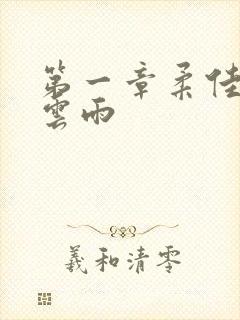 第一章柔佳
雲雨
羲和清零